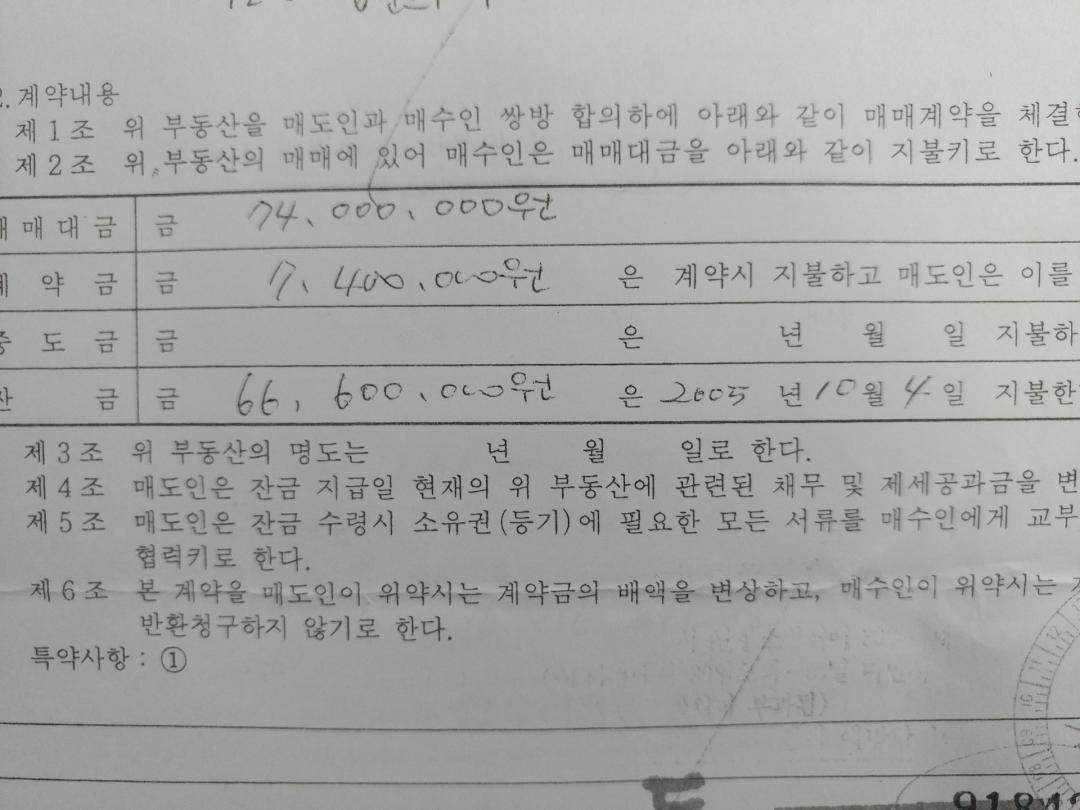 2. 계약내용
제1조 위 부동산을 매도인과 매수인 쌍방 합의하에 아래와 같이 매매계약을 체결
제2조 위 부동산의 매매에 있어 매수인은 매매대금을 아래와 같이 지불키로 한다.
매매대금 금 74,000,000원
계약금 금 7,400,000원 은 계약시 지불하고 매도인은 이를
중도금 금 은 년 월 일 지불하
잔금 금 66,600,000원 은 2005년 10월 4일 지불한
제3조 위 부동산의 명도는 년 월 일로 한다.
제4조 매도인은 잔금 지급일 현재의 위 부동산에 관련된 채무 및 제세공과금을 변
제5조 매도인은 잔금 수령시 소유권(등기)에 필요한 모든 서류를 매수인에게 교부
협력키로 한다.
제6조 본 계약을 매도인이 위약시는 계약금의 배액을 변상하고, 매수인이 위약시는
반환청구하지 않기로 한다.
특약사항 : ①